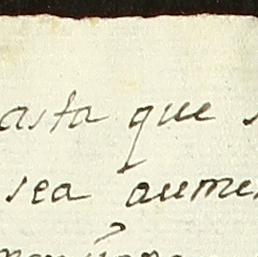 asta que s
sea aume